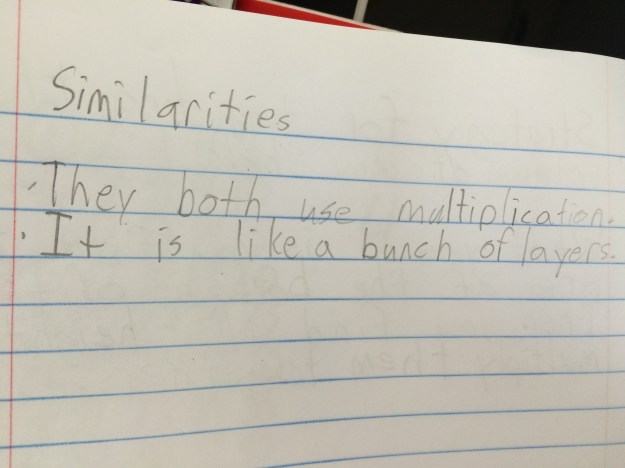 Similarities
· They both use multiplication.
· It is like a bunch of layers.